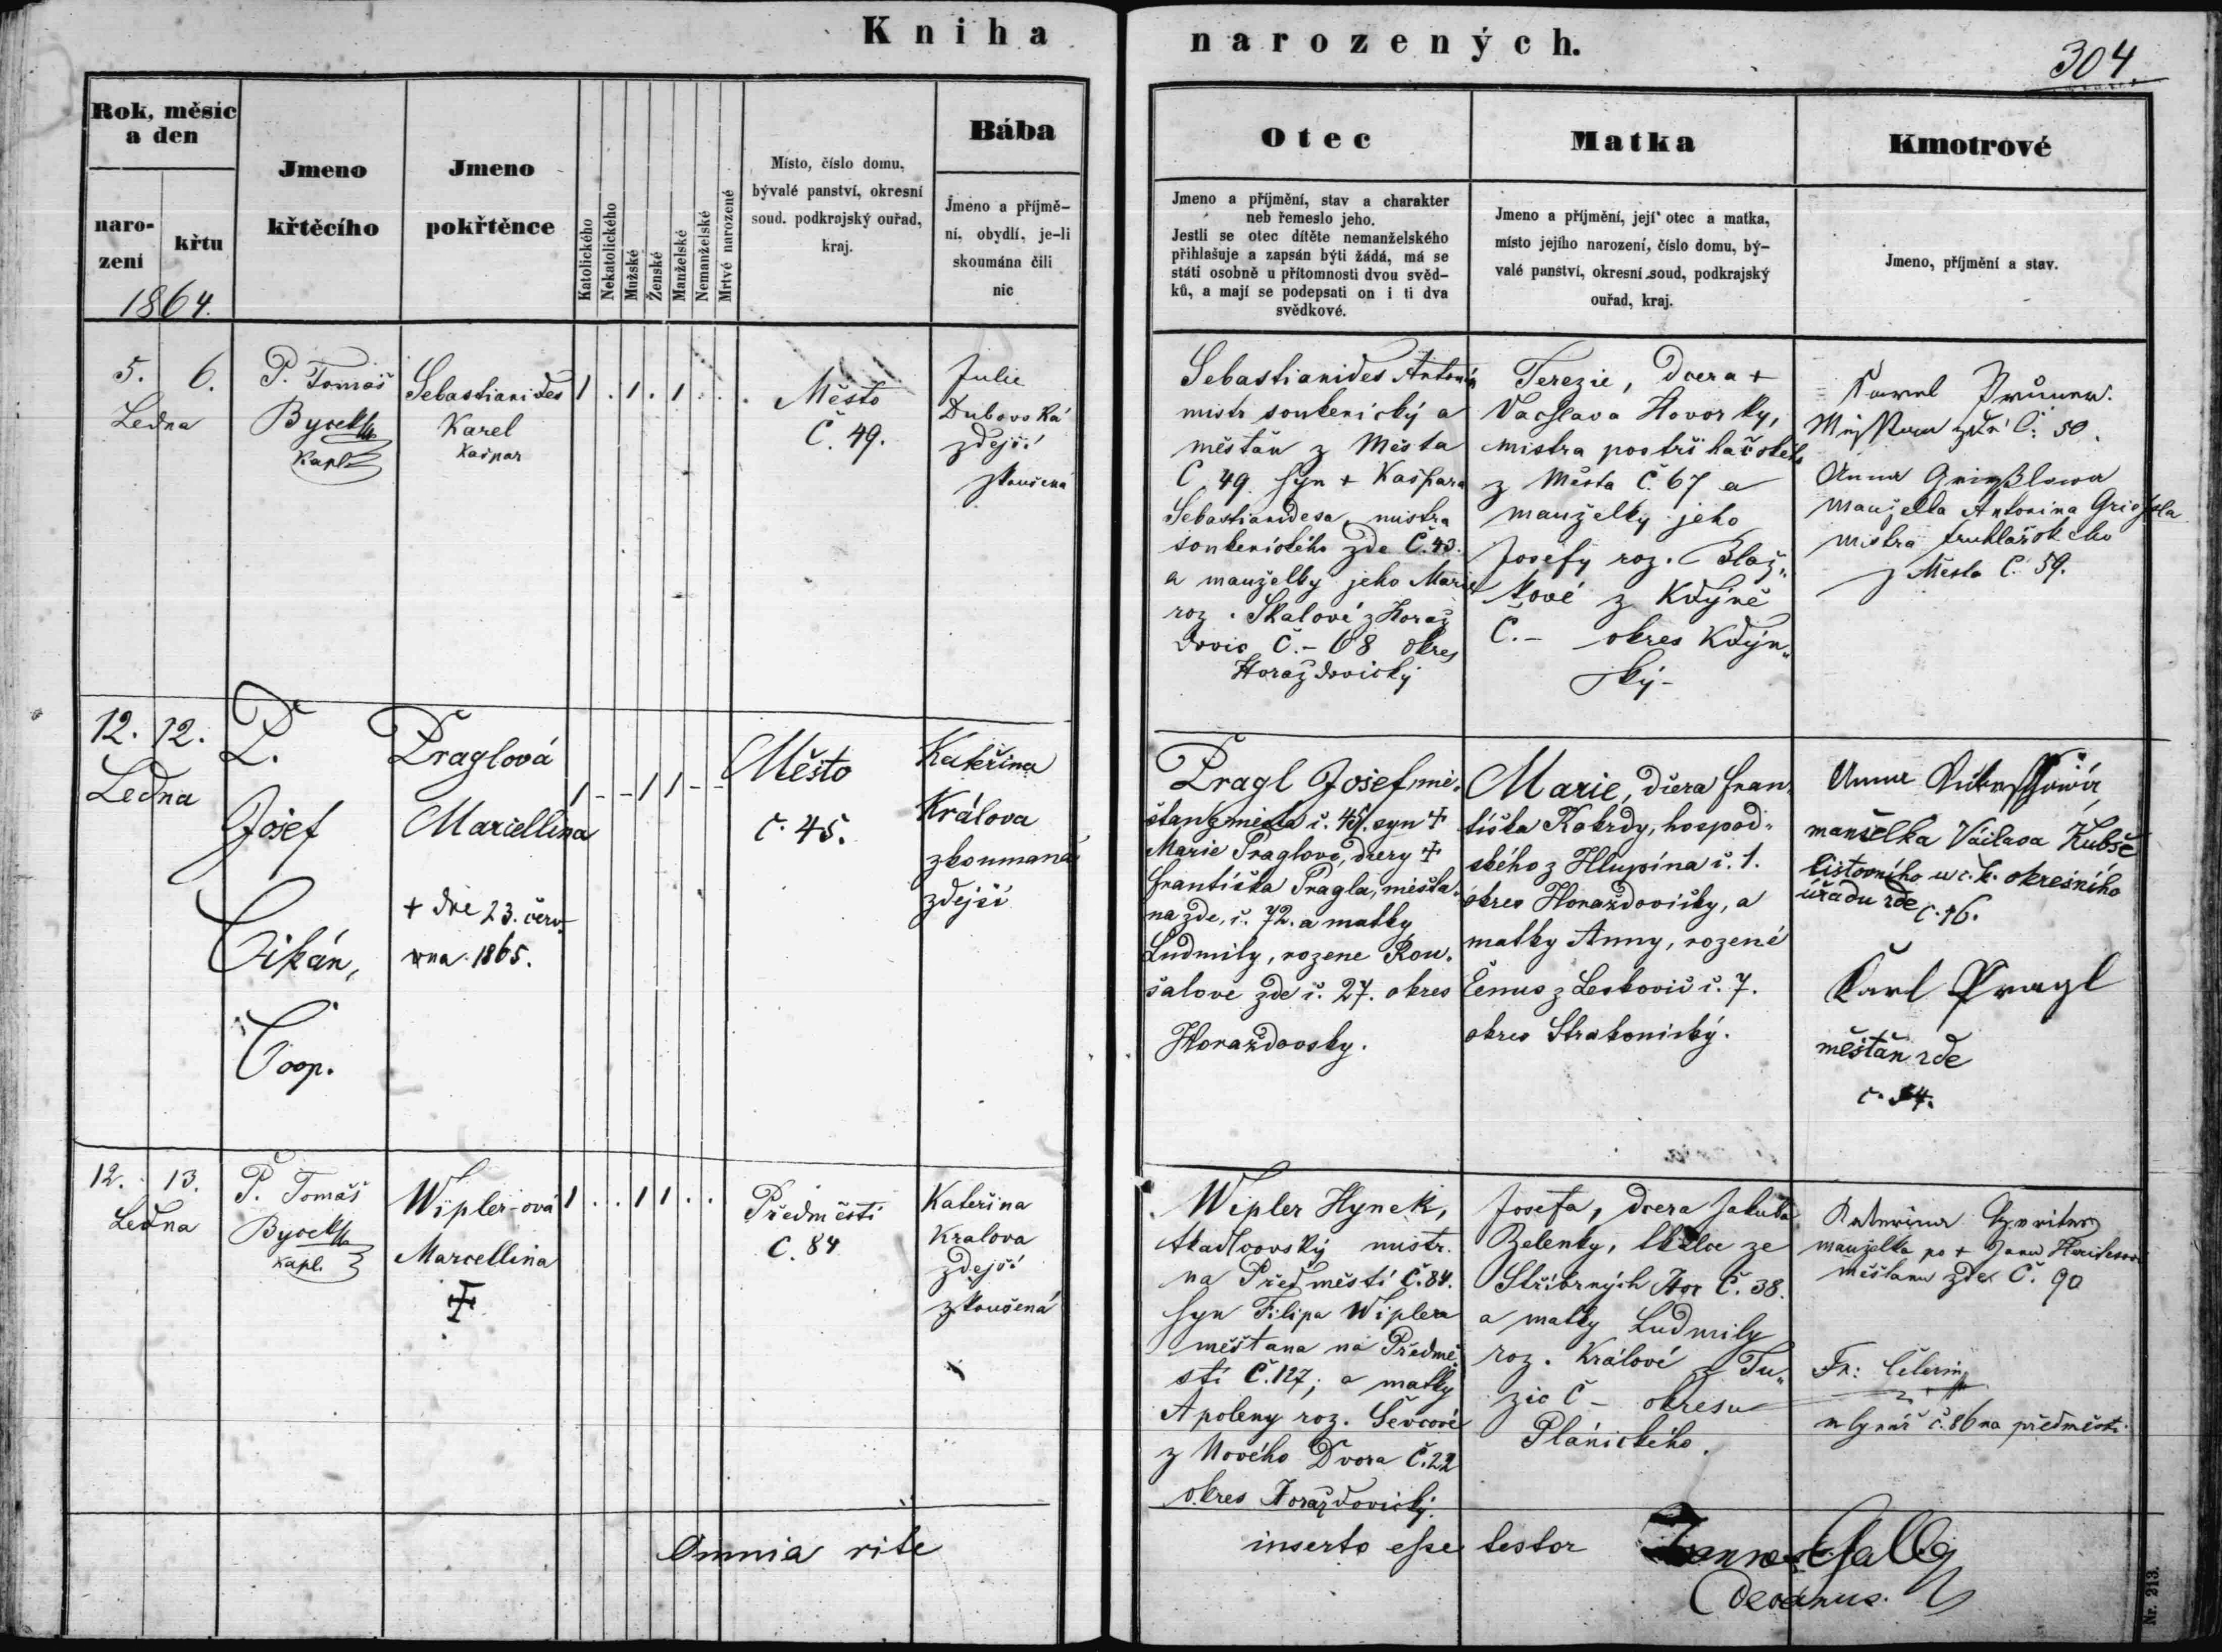 Kniha narozených.
304
Rok, měsíc
a den
naro-
zení
křtu
1864.
Jmeno
křtěcího
Jmeno
pokřtěnce
Katolického
Nekatolického
Mužské
Ženské
Manželské
Nemanželské
Mrtvé narozené
Místo, číslo domu,
bývalé panství, okresní
soud. podkrajský ouřad,
kraj.
Bába
Jméno a příjmě-
ní, obydlí, je-li
skoumána čili
nic
Otec
Jmeno a příjmění, stav a charakter
neb řemeslo jeho.
Jestli se otec dítěte nemanželského
přihlašuje a zapsán býti žádá, má se
státi osobně u přítomnosti dvou svěd-
ků, a mají se podepsati on i ti dva
svědkové.
Matka
Jmeno a příjmění, její otec a matka,
místo jejího narození, číslo domu, bý-
valé panství, okresní soud, podkrajský
ouřad, kraj.
Kmotrové
Jmeno, příjmění a stav.
5. 6.
Ledna
P. Tomáš
Kapl.
Sebastianides
Karel
Kašpar
1 . 1 . 1 . .
Město
Č. 49.
Julie
Dubovská
zdejší
zkoušená
Sebastianides Antonín
mistr soukenický a
měštan z Města
Č 49 syn + Kašpara
Sebastianidesa, mistra
soukenického zde Č. 43.
a manželky jeho Marie
roz. Skalové z Horaž
dovic Č.- 68 okres
Horažďovický
Terezie, dcera +
Vaclava Havorky,
mistra postřihačského
z Města Č. 67 a
manželky jeho
Josefy roz. Blaž„
kové z Kdýně
Č.- okres Kdýn„
ský-
Č. 50.
Anna
manželka Antonina
mistra truhlářského
z Města Č. 59.
12. 12.
Ledna
P.
Josef
Cikán,
Coop.
Praglová
Marcellina
+ dne 23. červ
na 1865.
1 - - 1 1 - -
Město
č. 45.
Kateřina
Králova
zkoumaná
zdejší
Pragl Josef, mě.
štan z města č. 45. syn +
Marie Praglové, dcery +
Františka Pragla, měšťa„
na zde, č. 72. a matky
Ludmily, rozene Rou.
salove zde č. 27. okres
Horažďovsky.
Marie, dcera Fran„
tiška Kokrdy, hospod„
ského z Hlupína č. 1.
okres Horažďovický, a
matky Anny, rozené
z Leskovic č. 7.
okres Strakonický.
Anna
manželka Václava
listovního u c. k. okresního
úřadu zde č. 16.
Karl Pragl
měštan zde
č. 54.
12. 13.
Ledna
P. Tomáš
kapl.
Wipler-ová
Marcellina
1 . . 1 1 . .
Předměstí
Č. 84
Kateřina
Kralova
zdejší
zkoušená
Wipler Hynek,
tkadlcovský mistr.
na Předměstí Č. 84.
syn Filipa Wiplera
měštana na Předmě„
stí Č. 127; a matky
Apoleny roz. Ševcové
z Nového Dvora Č. 22
okres Horažďovický.
Josefa, dcera Jakuba
Zelenky, tkalce ze
Stříbrných Hor Č. 38.
a matky Ludmily
roz. Králové z Tu„
zic Č - okresu
Plánického.
manželka po + Janu
měštanu zde Č. 90
Fr:
mlynář č. 86 na předměstí.
Omnia rite inserto esse testor
Decanus.
Nr. 213.